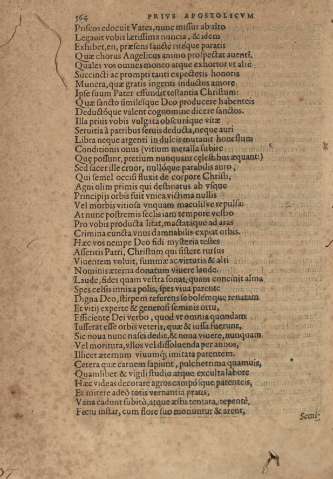 564 PRIVS APOSTOLICVM
Priscos edocuit Vates, nunc missus ab alto
Legauit vobis lætissima nuncia, & idem
Exhibet, en, præsens sanctè ritéque paratis
Quæ chorus Angelicus animo prospectat auenti,
Quales vos omnes moneo atque exhortor vt alte
Succincti ac prompti tanti expectetis honoris
Munera, quæ gratis ingentis inductus amore
Ipse suum Pater effundit testantia Christum:
Quæ sancto similésque Deo producere habenteis
Deductósque valent cognomine dicere sanctos.
Illa prius vobis vulgita obscurique vitæ
Seruitia à patribus seruis deducta, neque auri
Libra neque argenti in dulcis mutauit honestum
Conditionis onus (vitium metalla subire
Quę possunt, pretium nunquam cęlestibus æquant:)
Sed sacer ille cruor, nullóque parabilis auro,
Qui semel occisi fluxit de corpore Christi,
Agni olim primis qui destinatus ab vsque
Principijs orbis fuit vnica victima nullis
Vel morbis vitiósa vnquam maculísve repulsa:
At nunc postremis seclis iam tempore vestro
Pro vobis producta litat, mactatique ad aras
Crimina cuncta vnus damnabilis expiat orbis.
Hæc vos nempe Deo fidi mysteria testes
Assentis Patri, Christum qui sistere rursus
Viuentem voluit, summæ ac virtutis & alti
Nominis æterna donatum viuere laude.
Laude, fides quam vestra sonat, quam concinit alma
Spes celsis innixa polis, spes viua parente
Digna Deo, stirpem referens sobolemque renatam
Et vitij experte & generosi seminis ortu,
Efficiente Dei verbo, quod vt omnia quondam
Iusserat esse orbis veteris, quæ & iussa fuerunt,
Sic noua nunc nasci dedit, & noua viuere, nunquam
Vel moritura, vllos vel dissoluenda per annos,
Illicet æternum viuumque imitata parentem.
Cetera quæ carnem sapiunt, pulcherrima quamuis,
Quamlibet & vigili studio atque exculta labore
Hæc videas decorare agros campósque patenteis,
Et nitere adeò totis vernantia pratis,
Vana cadunt subitò, atque æstu tentata, repentè,
Fœtu instar, cum flore suo moriuntur & arent,
Semi-